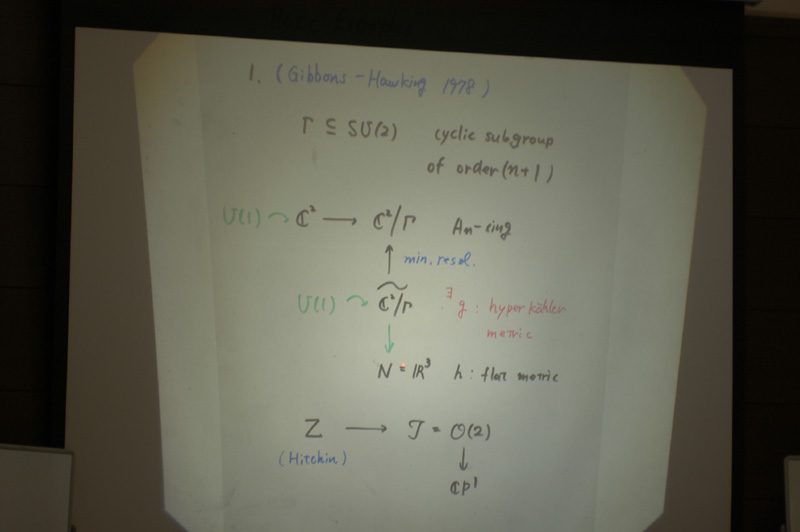 1. (Gibbons-Hawking 1978)
Γ ⊆ SU(2) cyclic subgroup
of order (n+1)
U(1) ↷ ℂ² → ℂ²/Γ An-sing
↑ min. resol.
U(1) ↷ ℂ²/Γ ∃ g : hyperkähler
metric
↓
N = ℝ³ h : flat metric
Z → 𝒯 = 𝒪(2)
(Hitchin) ↓
ℂP¹